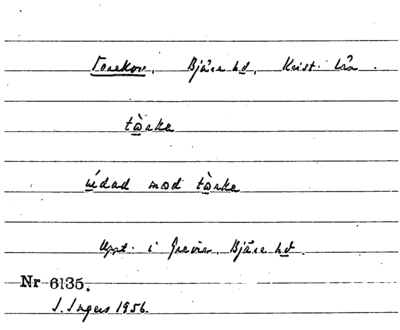 Torekov, Bjäre hd, Krist. län.
tàrka
úidad mad tàrka
Uppt. i Grevie, Bjäre hd.
Nr 6135.
I. Ingers 1956.